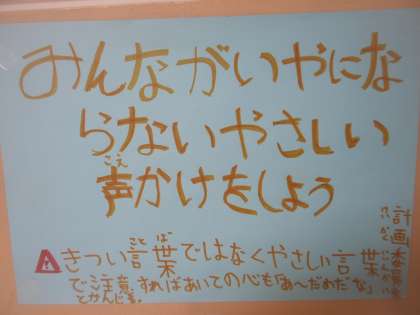 みんながいやにな
らないやさしい
声かけをしよう
こえ
きつい言葉ではなくやさしい言葉
こと ば
で注意すればあいての心も「あ〜だめだな」
とかんじる。
計画委員会